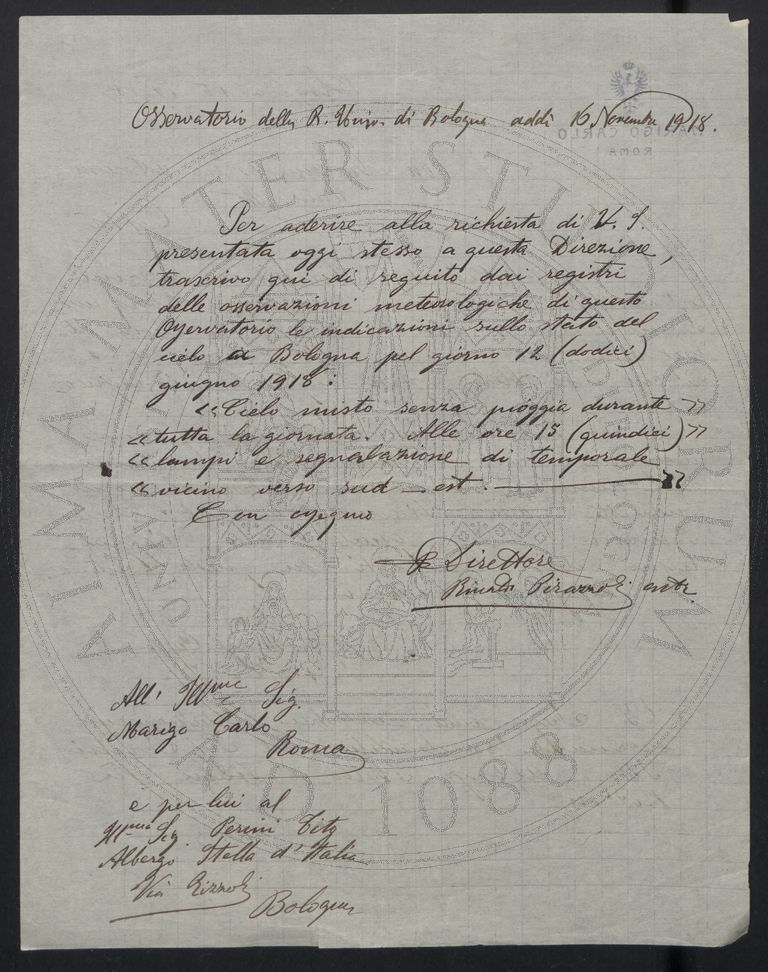 Osservatorio della R. Univ. di Bologna addì 16 Novembre 1918.
Per aderire alla richiesta di V. S.
presentata oggi stesso a questa Direzione,
trascrivo qui di seguito dai registri
delle osservazioni meteorologiche di questo
Osservatorio le indicazioni sullo stato del
cielo a Bologna pel giorno 12 (dodici)
giugno 1918:
«Cielo misto senza pioggia durante»
«tutta la giornata. Alle ore 15 (quindici)»
«lampi e segnalazione di temporale
«vicino verso sud-est.»
Con ossequio
Direttore
Rinaldo Pirazzoli
All' Illmo Sig.
Marigo Carlo
Roma
e per lui al
Illmo Sig. Perini Tito
Albergo Stella d'Italia
Via Rizzoli
Bologna
MARIGO CARLO
ROMA
ALMA MATER STUDIORUM
A.D. 1088